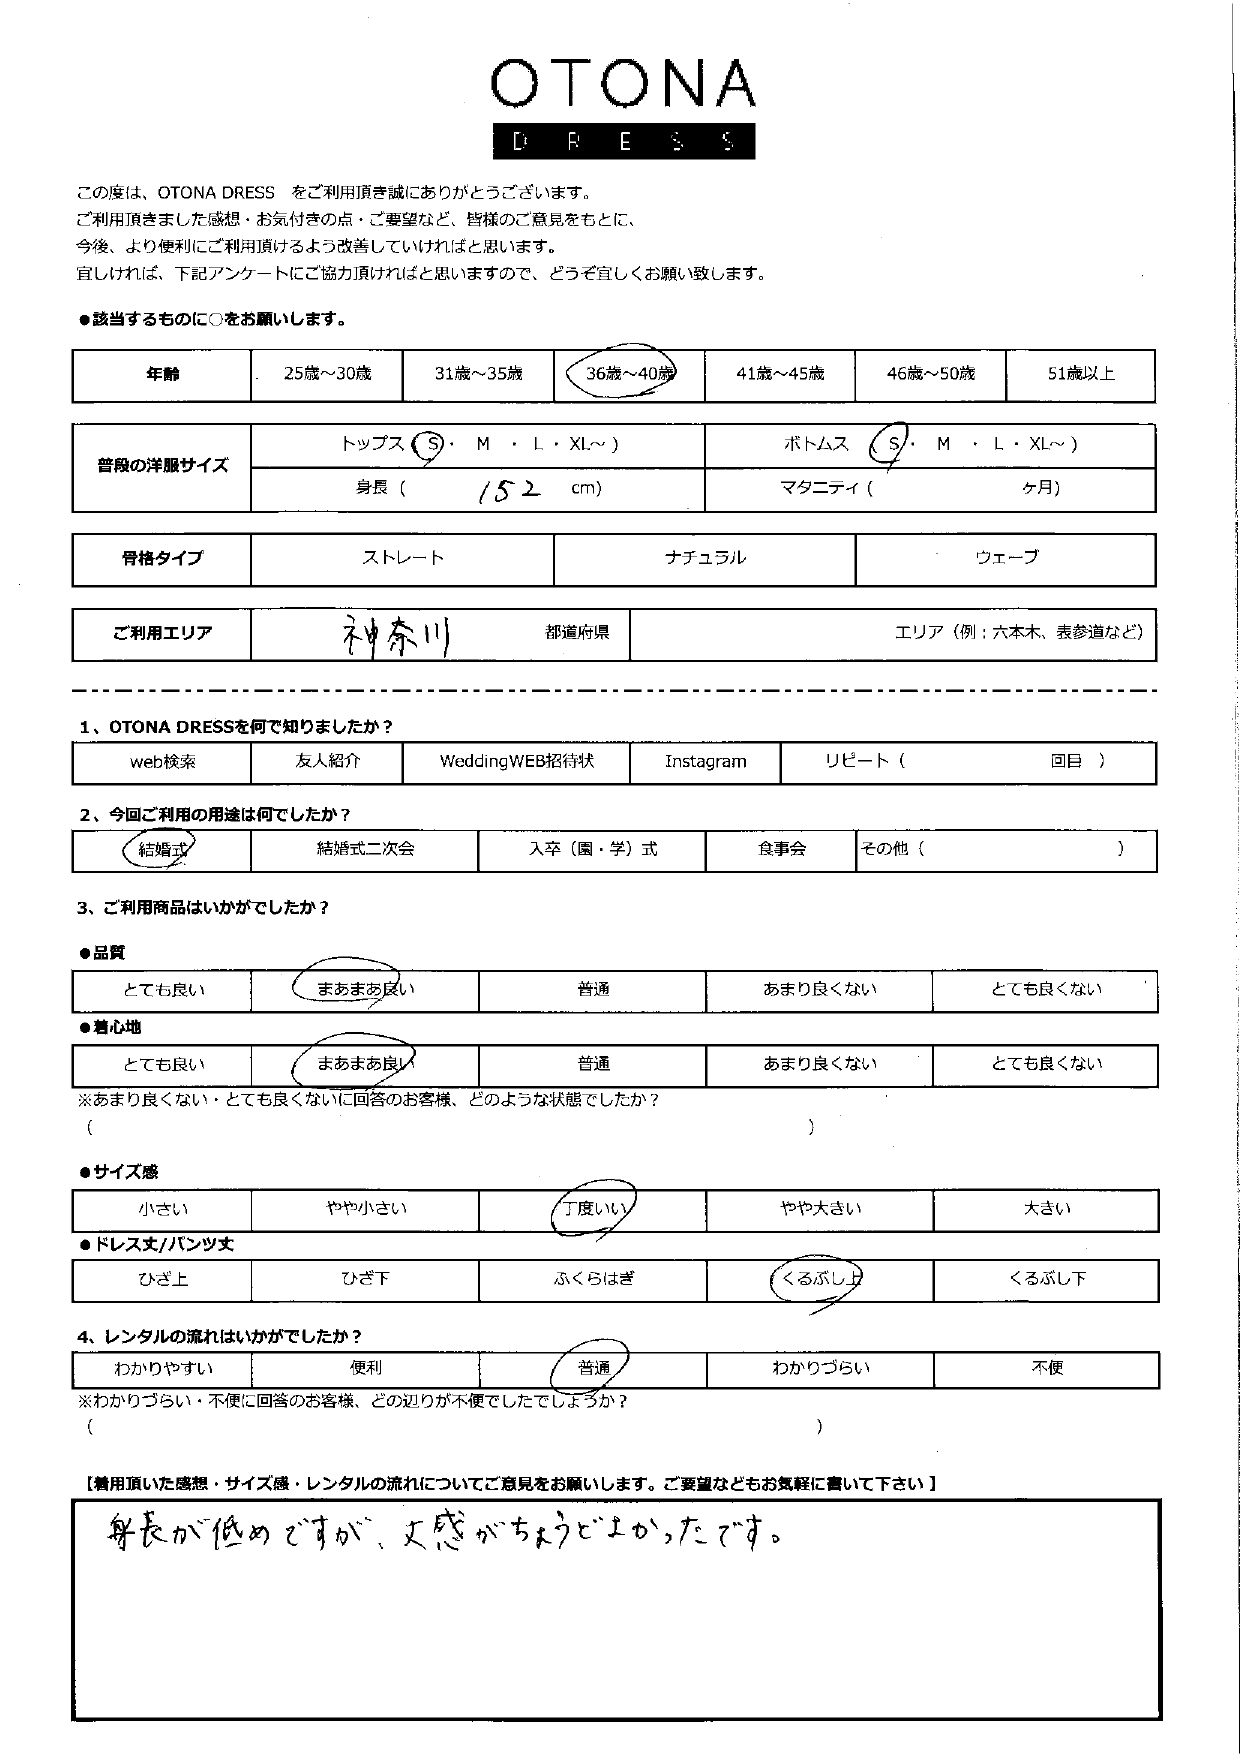 OTONA
DRESS
この度は、OTONA DRESS をご利用頂き誠にありがとうございます。
ご利用頂きました感想・お気付きの点・ご要望など、皆様のご意見をもとに、
今後、より便利にご利用頂けるよう改善していければと思います。
宜しければ、下記アンケートにご協力頂ければと思いますので、どうぞ宜しくお願い致します。
●該当するものに○をお願いします。
年齢 25歳～30歳 31歳～35歳 36歳～40歳 41歳～45歳 46歳～50歳 51歳以上
普段の洋服サイズ
トップス ( S ・ M ・ L ・ XL～ ) ボトムス ( S ・ M ・ L ・ XL～ )
身長 ( 152 cm) マタニティ ( ヶ月)
骨格タイプ ストレート ナチュラル ウェーブ
ご利用エリア 神奈川 都道府県 エリア（例：六本木、表参道など）
1、OTONA DRESSを何で知りましたか？
web検索 友人紹介 WeddingWEB招待状 Instagram リピート（ 回目 ）
2、今回ご利用の用途は何でしたか？
結婚式 結婚式二次会 入卒（園・学）式 食事会 その他（ ）
3、ご利用商品はいかがでしたか？
●品質
とても良い まあまあ良い 普通 あまり良くない とても良くない
●着心地
とても良い まあまあ良い 普通 あまり良くない とても良くない
※あまり良くない・とても良くないに回答のお客様、どのような状態でしたか？
（ ）
●サイズ感
小さい やや小さい 丁度いい やや大きい 大きい
●ドレス丈/パンツ丈
ひざ上 ひざ下 ふくらはぎ くるぶし上 くるぶし下
4、レンタルの流れはいかがでしたか？
わかりやすい 便利 普通 わかりづらい 不便
※わかりづらい・不便に回答のお客様、どの辺りが不便でしたでしょうか？
（ ）
【着用頂いた感想・サイズ感・レンタルの流れについてご意見をお願いします。ご要望などもお気軽に書いて下さい 】
身長が低めですが、丈感がちょうどよかったです。